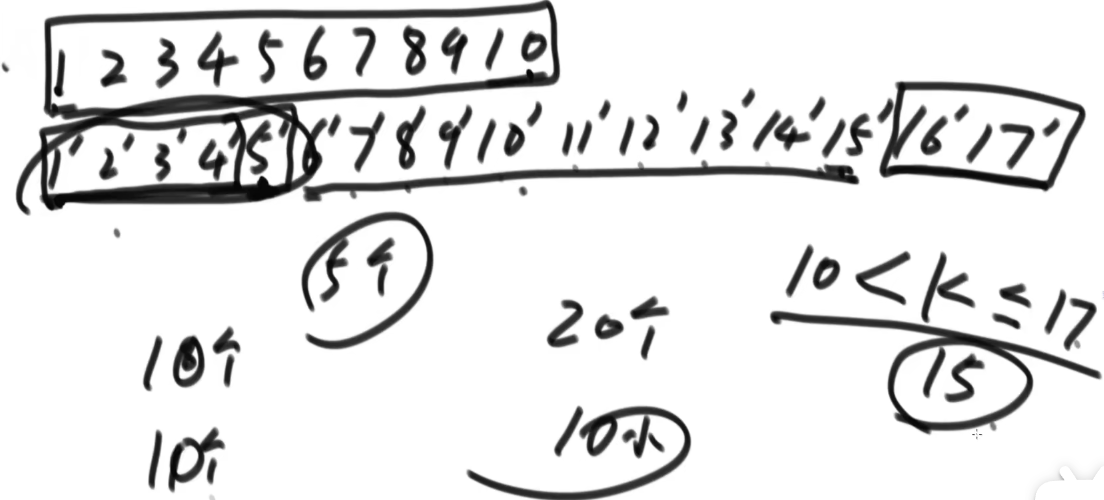 1 2 3 4 5 6 7 8 9 10
1' 2' 3' 4' 5' 6' 7' 8' 9' 10' 11' 12' 13' 14' 15' 16' 17'
5个
10<k≤17
20个
10个
15
10小
10个